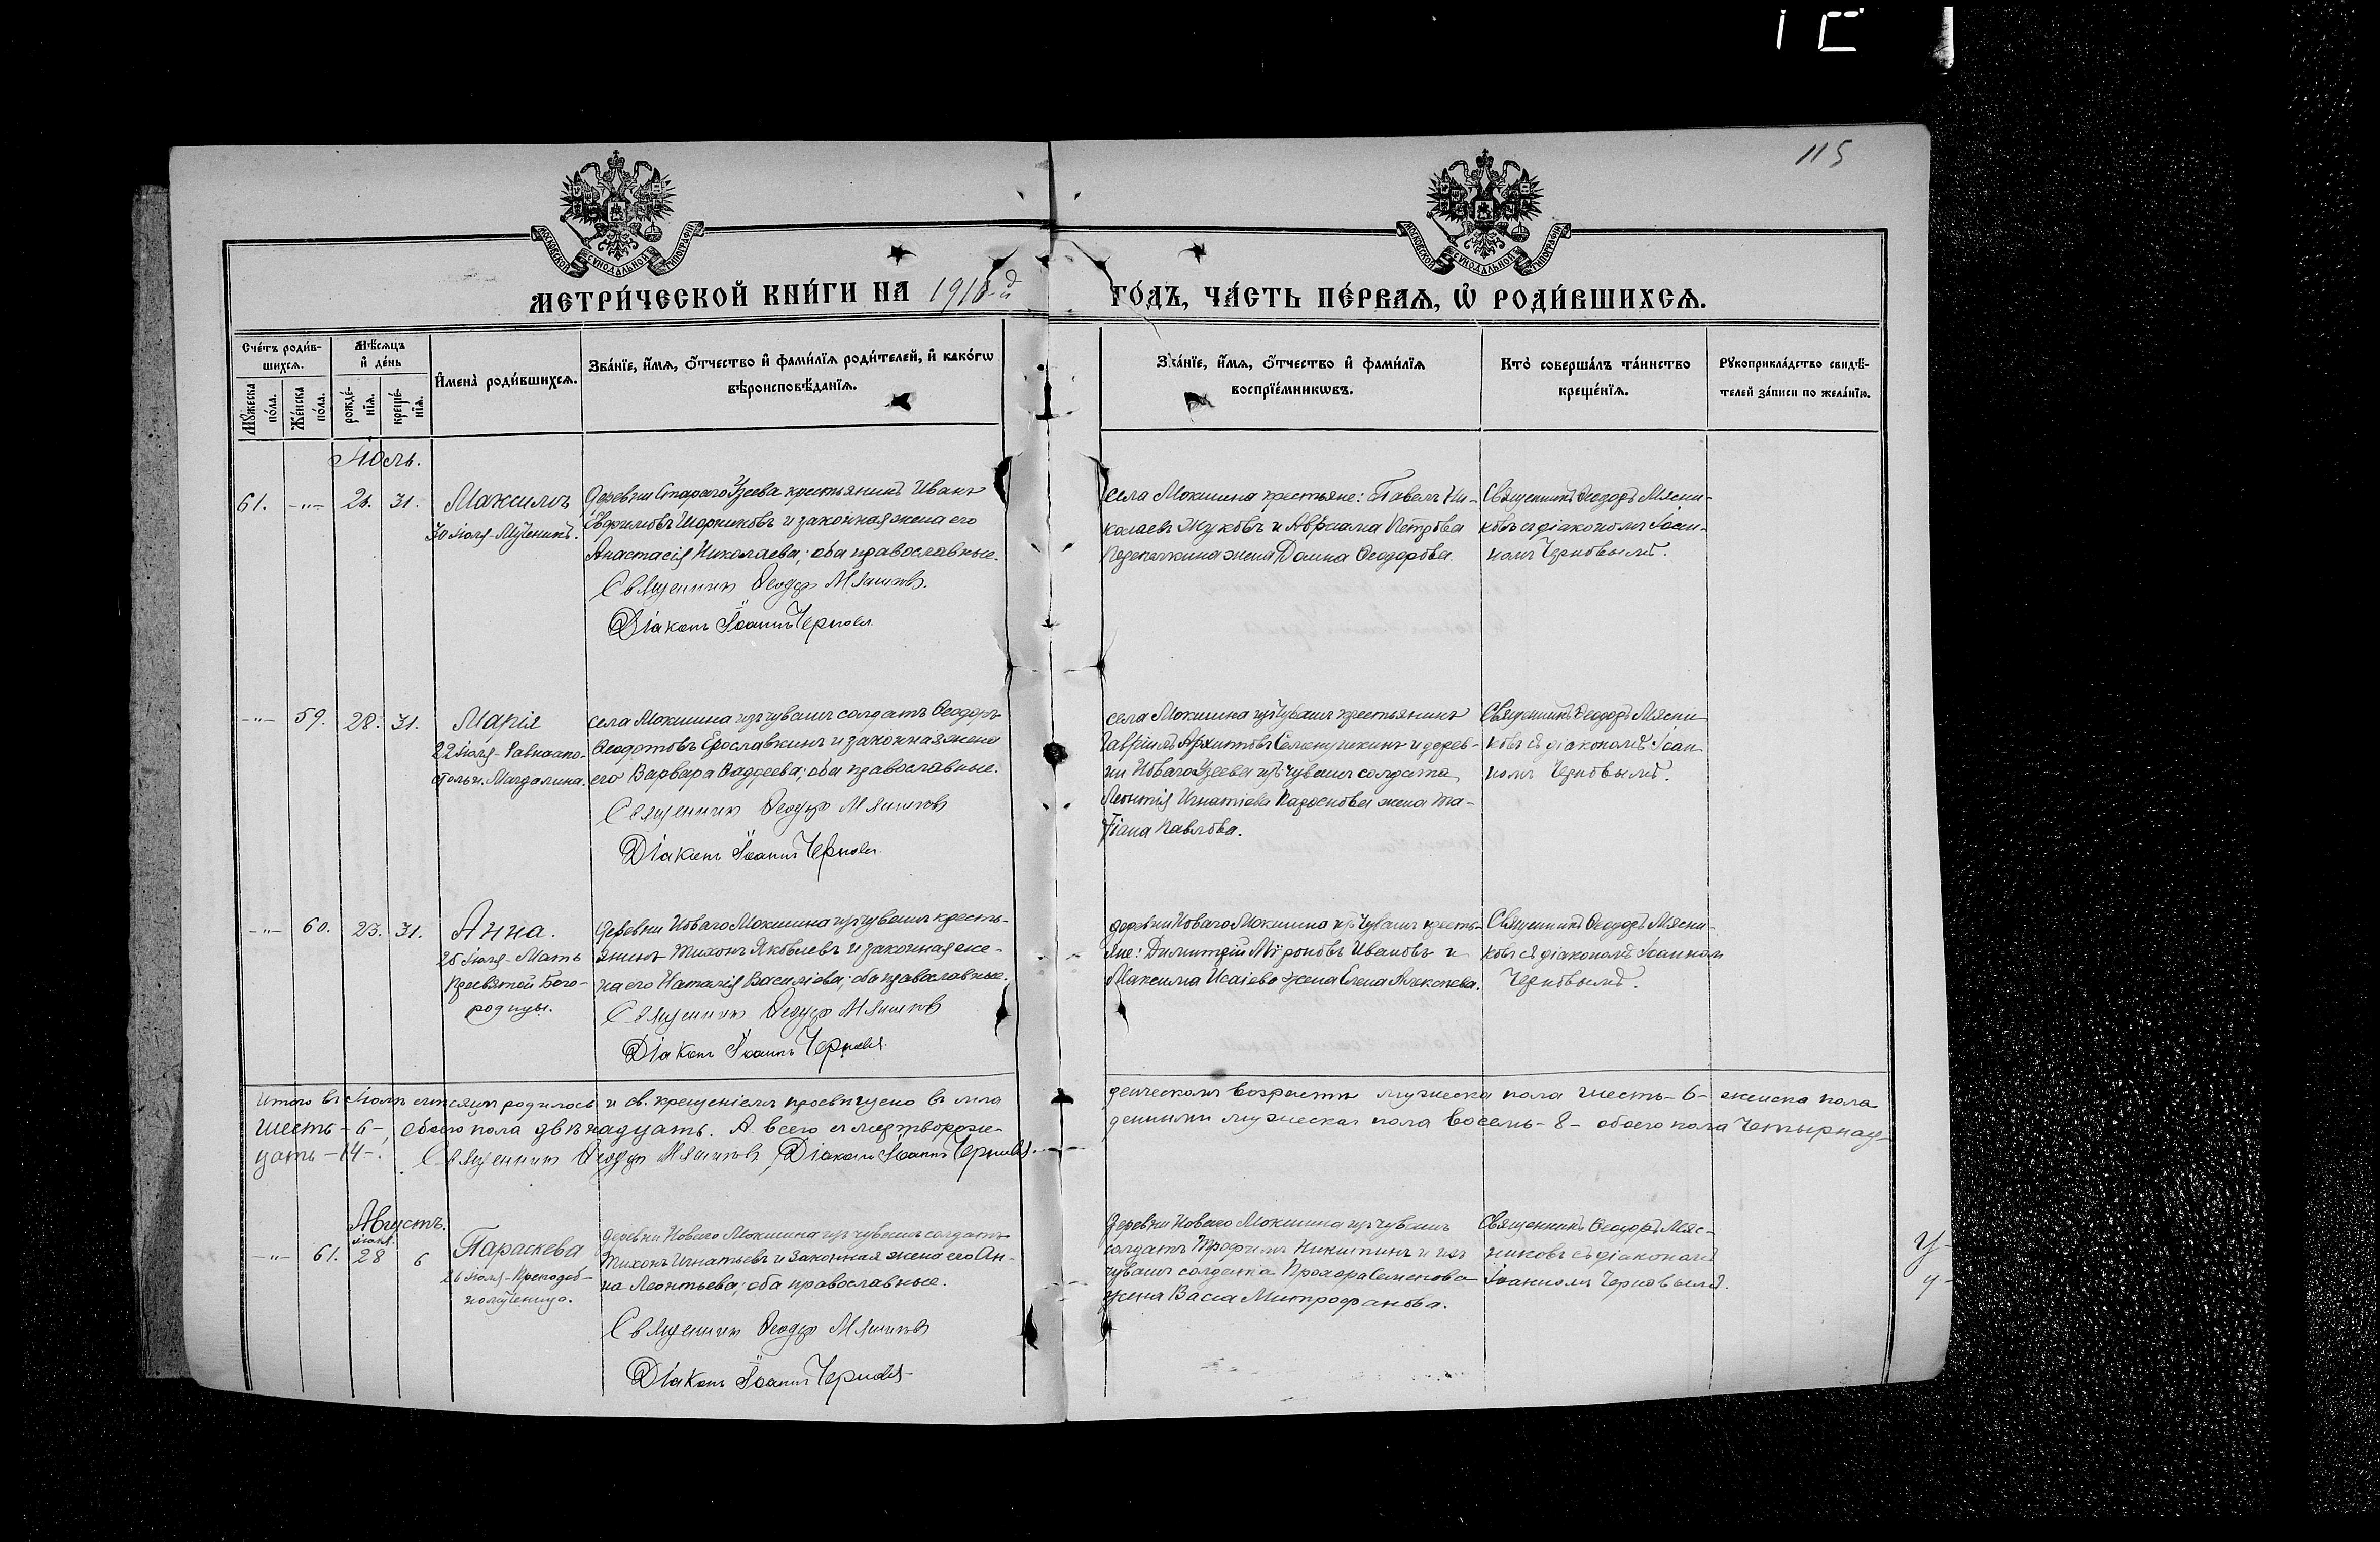 115
МОСКОВСКОЙ СѴНОДАЛЬНОЙ ТИПОГРАФІИ
МОСКОВСКОЙ СѴНОДАЛЬНОЙ ТИПОГРАФІИ
МЕТРИ́ЧЕСКОЙ КНИ́ГИ НА 1916-й
ГО́ДЪ, ЧА́СТЬ ПЕ́РВАѦ, Ѡ҆ РОДИ́ВШИХСѦ.
Сче́тъ роди́в-
шихсѧ.
Мꙋ́жеска по́ла.
Же́нска по́ла.
Мѣ́сѧцъ
и҆ де́нь
рожде́-
нїѧ.
креще́-
нїѧ.
И҆мена̀ роди́вшихсѧ.
Зва́нїе, и҆́мѧ, ѻ҆́тчество и҆ фами́лїѧ роди́телей, и҆ како́гѡ
вѣроисповѣ́данїѧ.
Зва́нїе, и҆́мѧ, ѻ҆́тчество и҆ фами́лїѧ
воспрїе́мникѡвъ.
Кто̀ соверша́лъ та́инство
креще́нїѧ.
Рꙋкоприкла́дство свидѣ́-
телей за́писи по жела́нїю.
Іюль.
61. -"- 31. Максимъ
30 Іюля-Мученикъ.
Деревни Стараго Узеева крестьянинъ Иванъ
Ефимовъ Шорниковъ и законная жена его
Анастасія Николаева; оба православные.
Священник Ѳеодор Мясников.
Діаконъ Іоаннъ Чернов
села Мокшина крестьяне: Павелъ Ни-
колаевъ Жуковъ и Авраама Петрова
Перепелкина жена Домна Ѳеодорова.
Священникъ Ѳеодоръ Мясни-
ковъ съ діакономъ Іоан-
номъ Черновымъ.
-"- 59. 28. 31. Марія
22 Іюля-Равноапо-
стольн. Магдалина.
села Мокшина изъ чувашъ солдатъ Ѳеодоръ
Ѳеодотовъ Ерославкинъ и законная жена
его Варвара Ѳаддеева; оба православные.
Священник Ѳеодор Мясников
Діаконъ Іоаннъ Чернов
села Мокшина изъ чувашъ крестьянинъ
Гавріилъ Архиповъ и дерев-
ни Новаго Узеева изъ чувашъ солдата
Леонтія Игнатіева жена Та-
тіана Павлова.
Священникъ Ѳеодоръ Мясни
ковъ съ діакономъ Іоан
номъ Черновымъ.
-"- 60. 23. 31. Анна.
25 Іюля-Мать
Пресвятой Бого-
родицы.
Деревни Новаго Мокшина изъ чувашъ кресть-
янинъ Тихонъ Яковлевъ и законная же-
на его Наталія Василіева; оба православные.
Священник Ѳеодор Мясников
Діаконъ Іоаннъ Чернов
деревни Новаго Мокшина изъ чувашъ кресть-
яне: Димитрій Мѵроновъ Ивановъ и
Максима Исаіева жена Елена Алексѣева.
Священникъ Ѳеодоръ Мясни-
ковъ съ діакономъ Іоанномъ
Черновымъ.
Итого въ Іюлѣ мѣсяцѣ родилось и св. крещеніемъ просвѣщено въ мла
денческомъ возрастѣ мужеска пола шесть-6- женска пола
шесть-6-, обоего пола двѣнадцать. А всего съ мертворож-
денными мужеска пола восемь-8- обоего пола четырнад-
цать-14-. Священник Ѳеодор Мясников, Діаконъ Іоаннъ Чернов.
Августъ.
-"- 61. Іюля 28 6 Параскева
26 Іюля-Преподоб-
номученица.
Деревни Новаго Мокшина изъ чувашъ солдатъ
Тихонъ Игнатьевъ и законная жена его Ан-
на Леонтьева; оба православные.
Священник Ѳеодор Мясников
Діаконъ Іоаннъ Чернов
Деревни Новаго Мокшина изъ чувашъ
солдатъ Трофимъ Никитинъ и изъ
чувашъ солдата Прохора Семенова
жена Васса Митрофанова.
Священникъ Ѳеодоръ Мяс-
никовъ съ діакономъ
Іоанномъ Черновымъ.